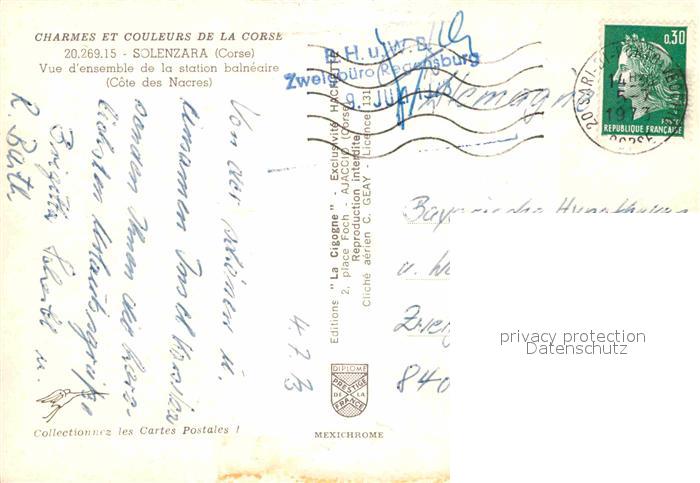 CHARMES ET COULEURS DE LA CORSE
20.269.15 - SOLENZARA (Corse)
Vue d'ensemble de la station balnéaire
(Côte des Nacres)
Von der schönen u.
einsamen Insel Korsika
senden Ihnen die herz-
lichsten Urlaubsgrüße
Brigitte
u.
R. Barth
4.7.73
Collectionnez les Cartes Postales !
Editions "La Cigogne" - Exclusivité HACHETTE
2, place Foch - AJACCIO (Corse)
Reproduction interdite
Cliché aérien C. GEAY - Licence 131
DIPLOME
PRESTIGE
DE LA
FRANCE
MEXICHROME
B.H.u.W.B.
Zweigbüro Regensburg
9. JULI
Allemagne
20 SARI
14 H
5-7
1973
CORSE
0.30
REPUBLIQUE FRANÇAISE
Bayerische Hypotheken
u.
840
privacy protection
Datenschutz